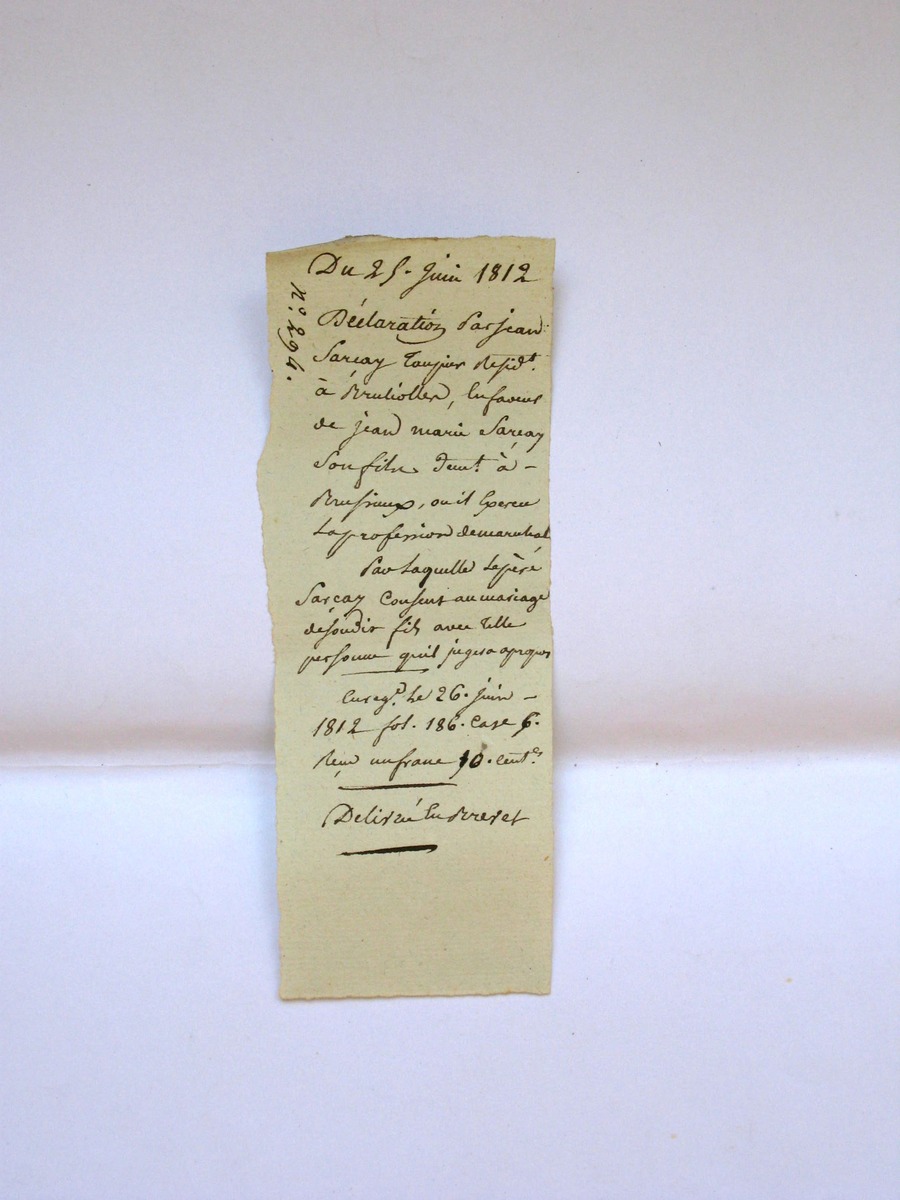 Du 25. juin 1812
N°. 294.
Déclaration Par jean
Sarcay Toupier Résidt.
à Brulioller, En faveur
de jean marie Sarcay
Son fils Demt. à -
Brussieux, ou il Exerce
La profession de marechal
Par Laquelle Le père
Sarcay Consent au mariage
de Soudit fils avec Telle
personne qu'il jugera apropos
Enregé. Le 26. juin -
1812 fol. 186. Case 6.
Reçu un franc 10. centes
Delivré En Brevet